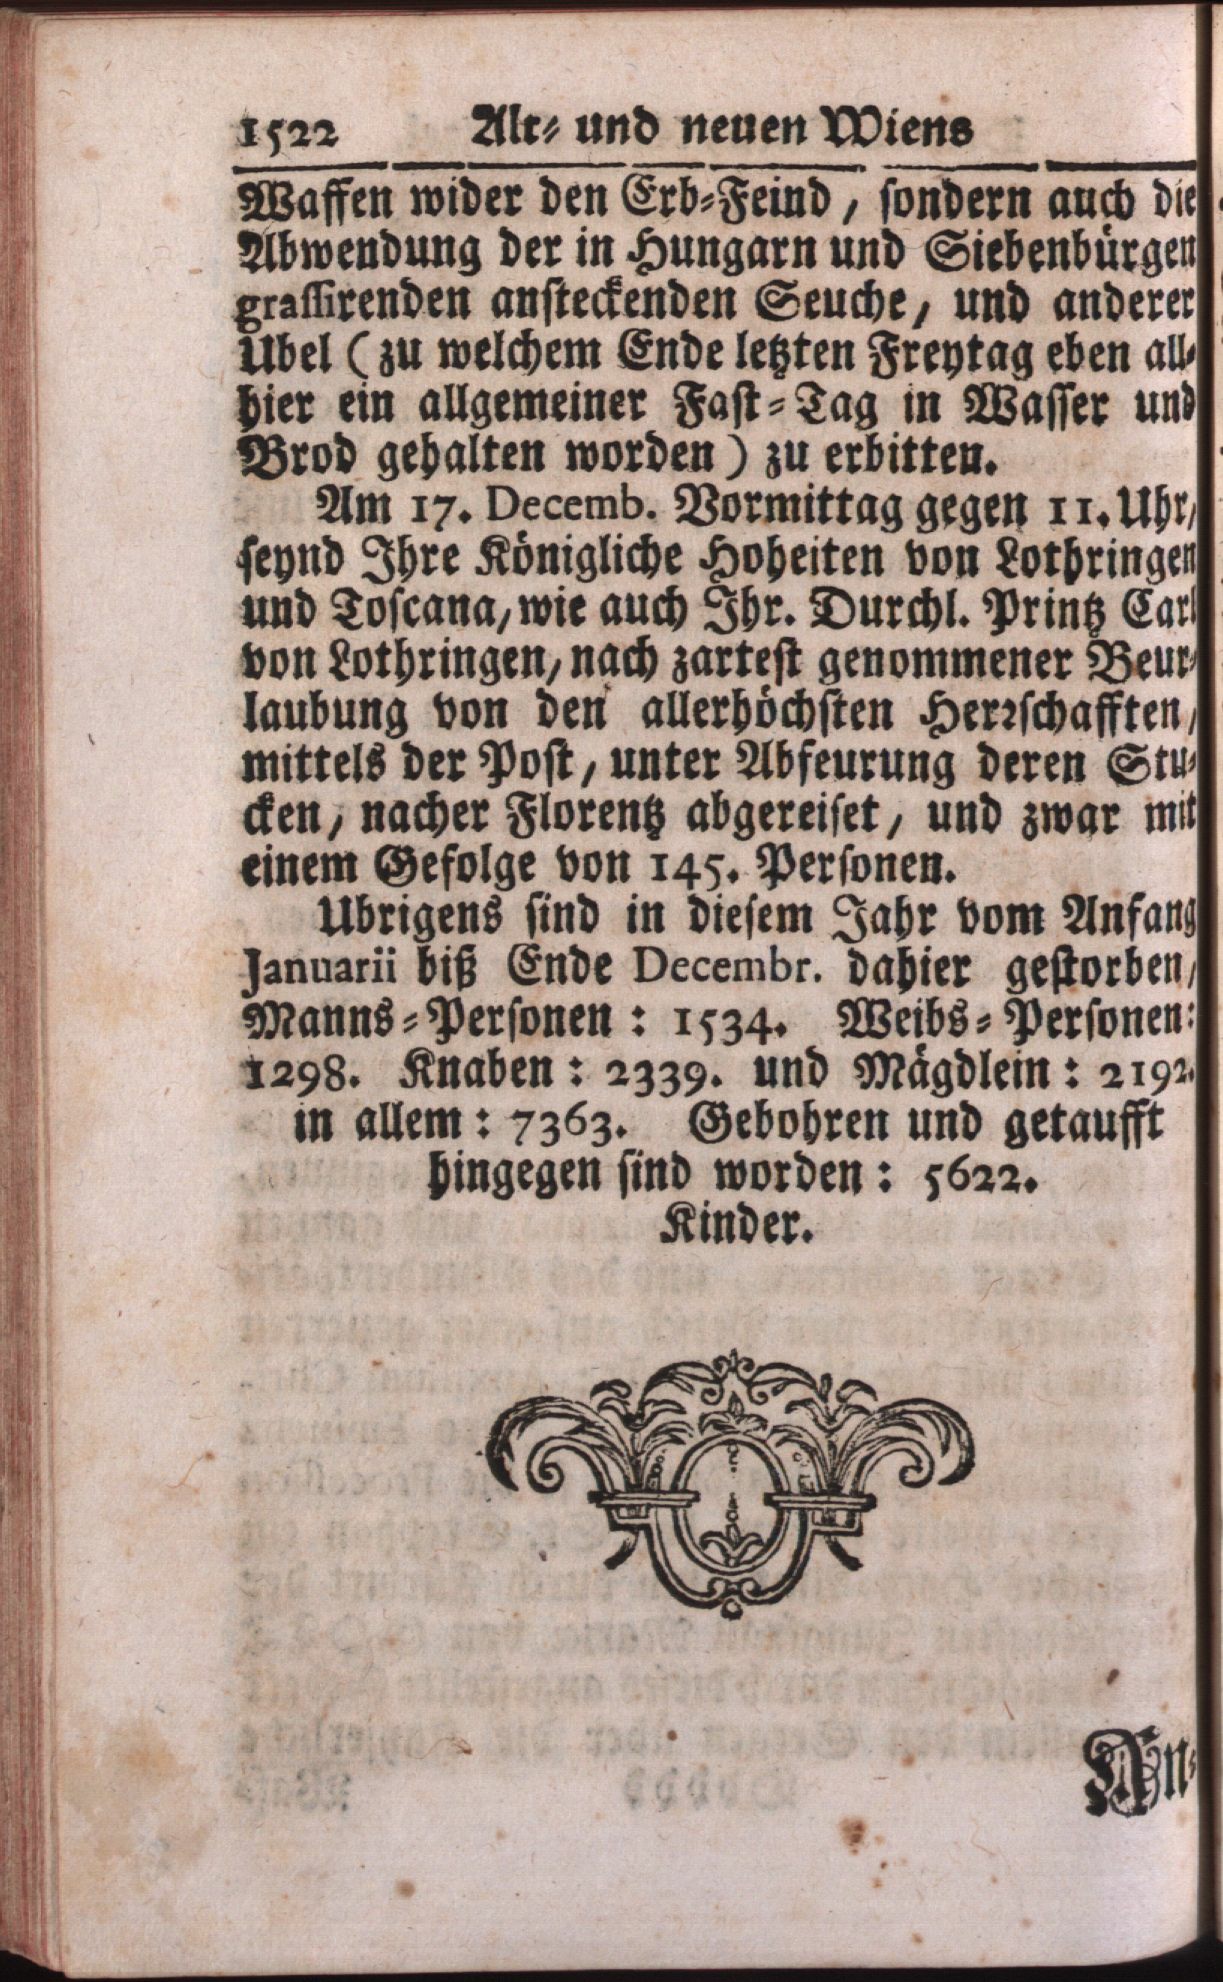 1522 Alt- und neuen Wiens
Waffen wider den Erb-Feind, sondern auch die
Abwendung der in Hungarn und Siebenbürgen
grassirenden ansteckenden Seuche, und anderer
Ubel (zu welchem Ende letzten Freytag eben all-
hier ein allgemeiner Fast-Tag in Wasser und
Brod gehalten worden) zu erbitten.
Am 17. Decemb. Vormittag gegen 11. Uhr,
seynd Ihre Königliche Hoheiten von Lothringen
und Toscana, wie auch Ihr. Durchl. Printz Carl
von Lothringen, nach zartest genommener Beur-
laubung von den allerhöchsten Herrschafften,
mittels der Post, unter Abfeurung deren Stu-
cken, nacher Florentz abgereiset, und zwar mit
einem Gefolge von 145. Personen.
Ubrigens sind in diesem Jahr vom Anfang
Januarii biß Ende Decembr. dahier gestorben,
Manns-Personen: 1534. Weibs-Personen:
1298. Knaben: 2339. und Mägdlein: 2192.
in allem: 7363. Gebohren und getaufft
hingegen sind worden: 5622.
Kinder.
An-